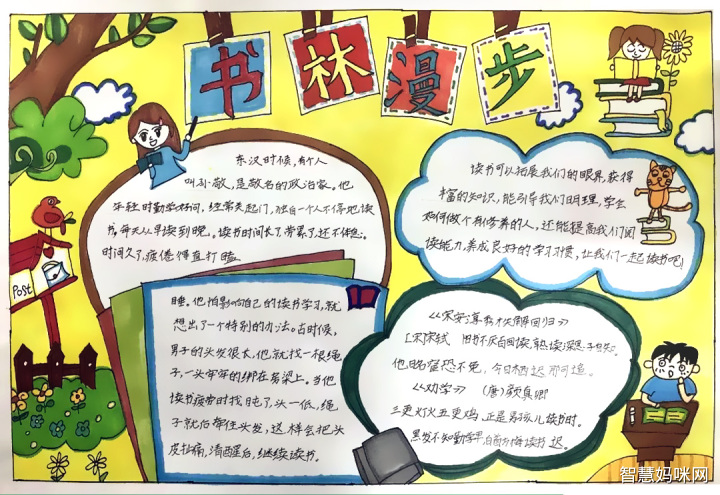 书林漫步
东汉时候,有个人
叫孙敬,是敬名的政治家。他
年轻时勤学好问,经常关起门,独自一个人不停地读
书。每天从早读到晚。读书时间长了,劳累了,还不休息。
时间久了,疲倦得直打瞌
睡。他怕影响自己的读书学习,就
想出了一个特别的办法。古时候,
男子的头发很长,他就找一根绳
子,一头牢牢的绑在房梁上。当他
读书疲劳时打盹了,头一低,绳
子就后牵住头发,这样会把头
皮扯痛,清醒后,继续读书。
读书可以拓展我们的眼界,获得
丰富的知识,能引导我们明理,学会
如何做个有修养的人,还能提高我们阅
读能力,养成良好的学习习惯,让我们一起读书吧!
旧书不厌百回读,熟读深思子自知。
他
《劝学》 (唐)颜真卿
三更灯火五更鸡,正是男孩儿读书时。
黑发不知勤学早,白首方悔读书迟。
Post
智慧妈咪网